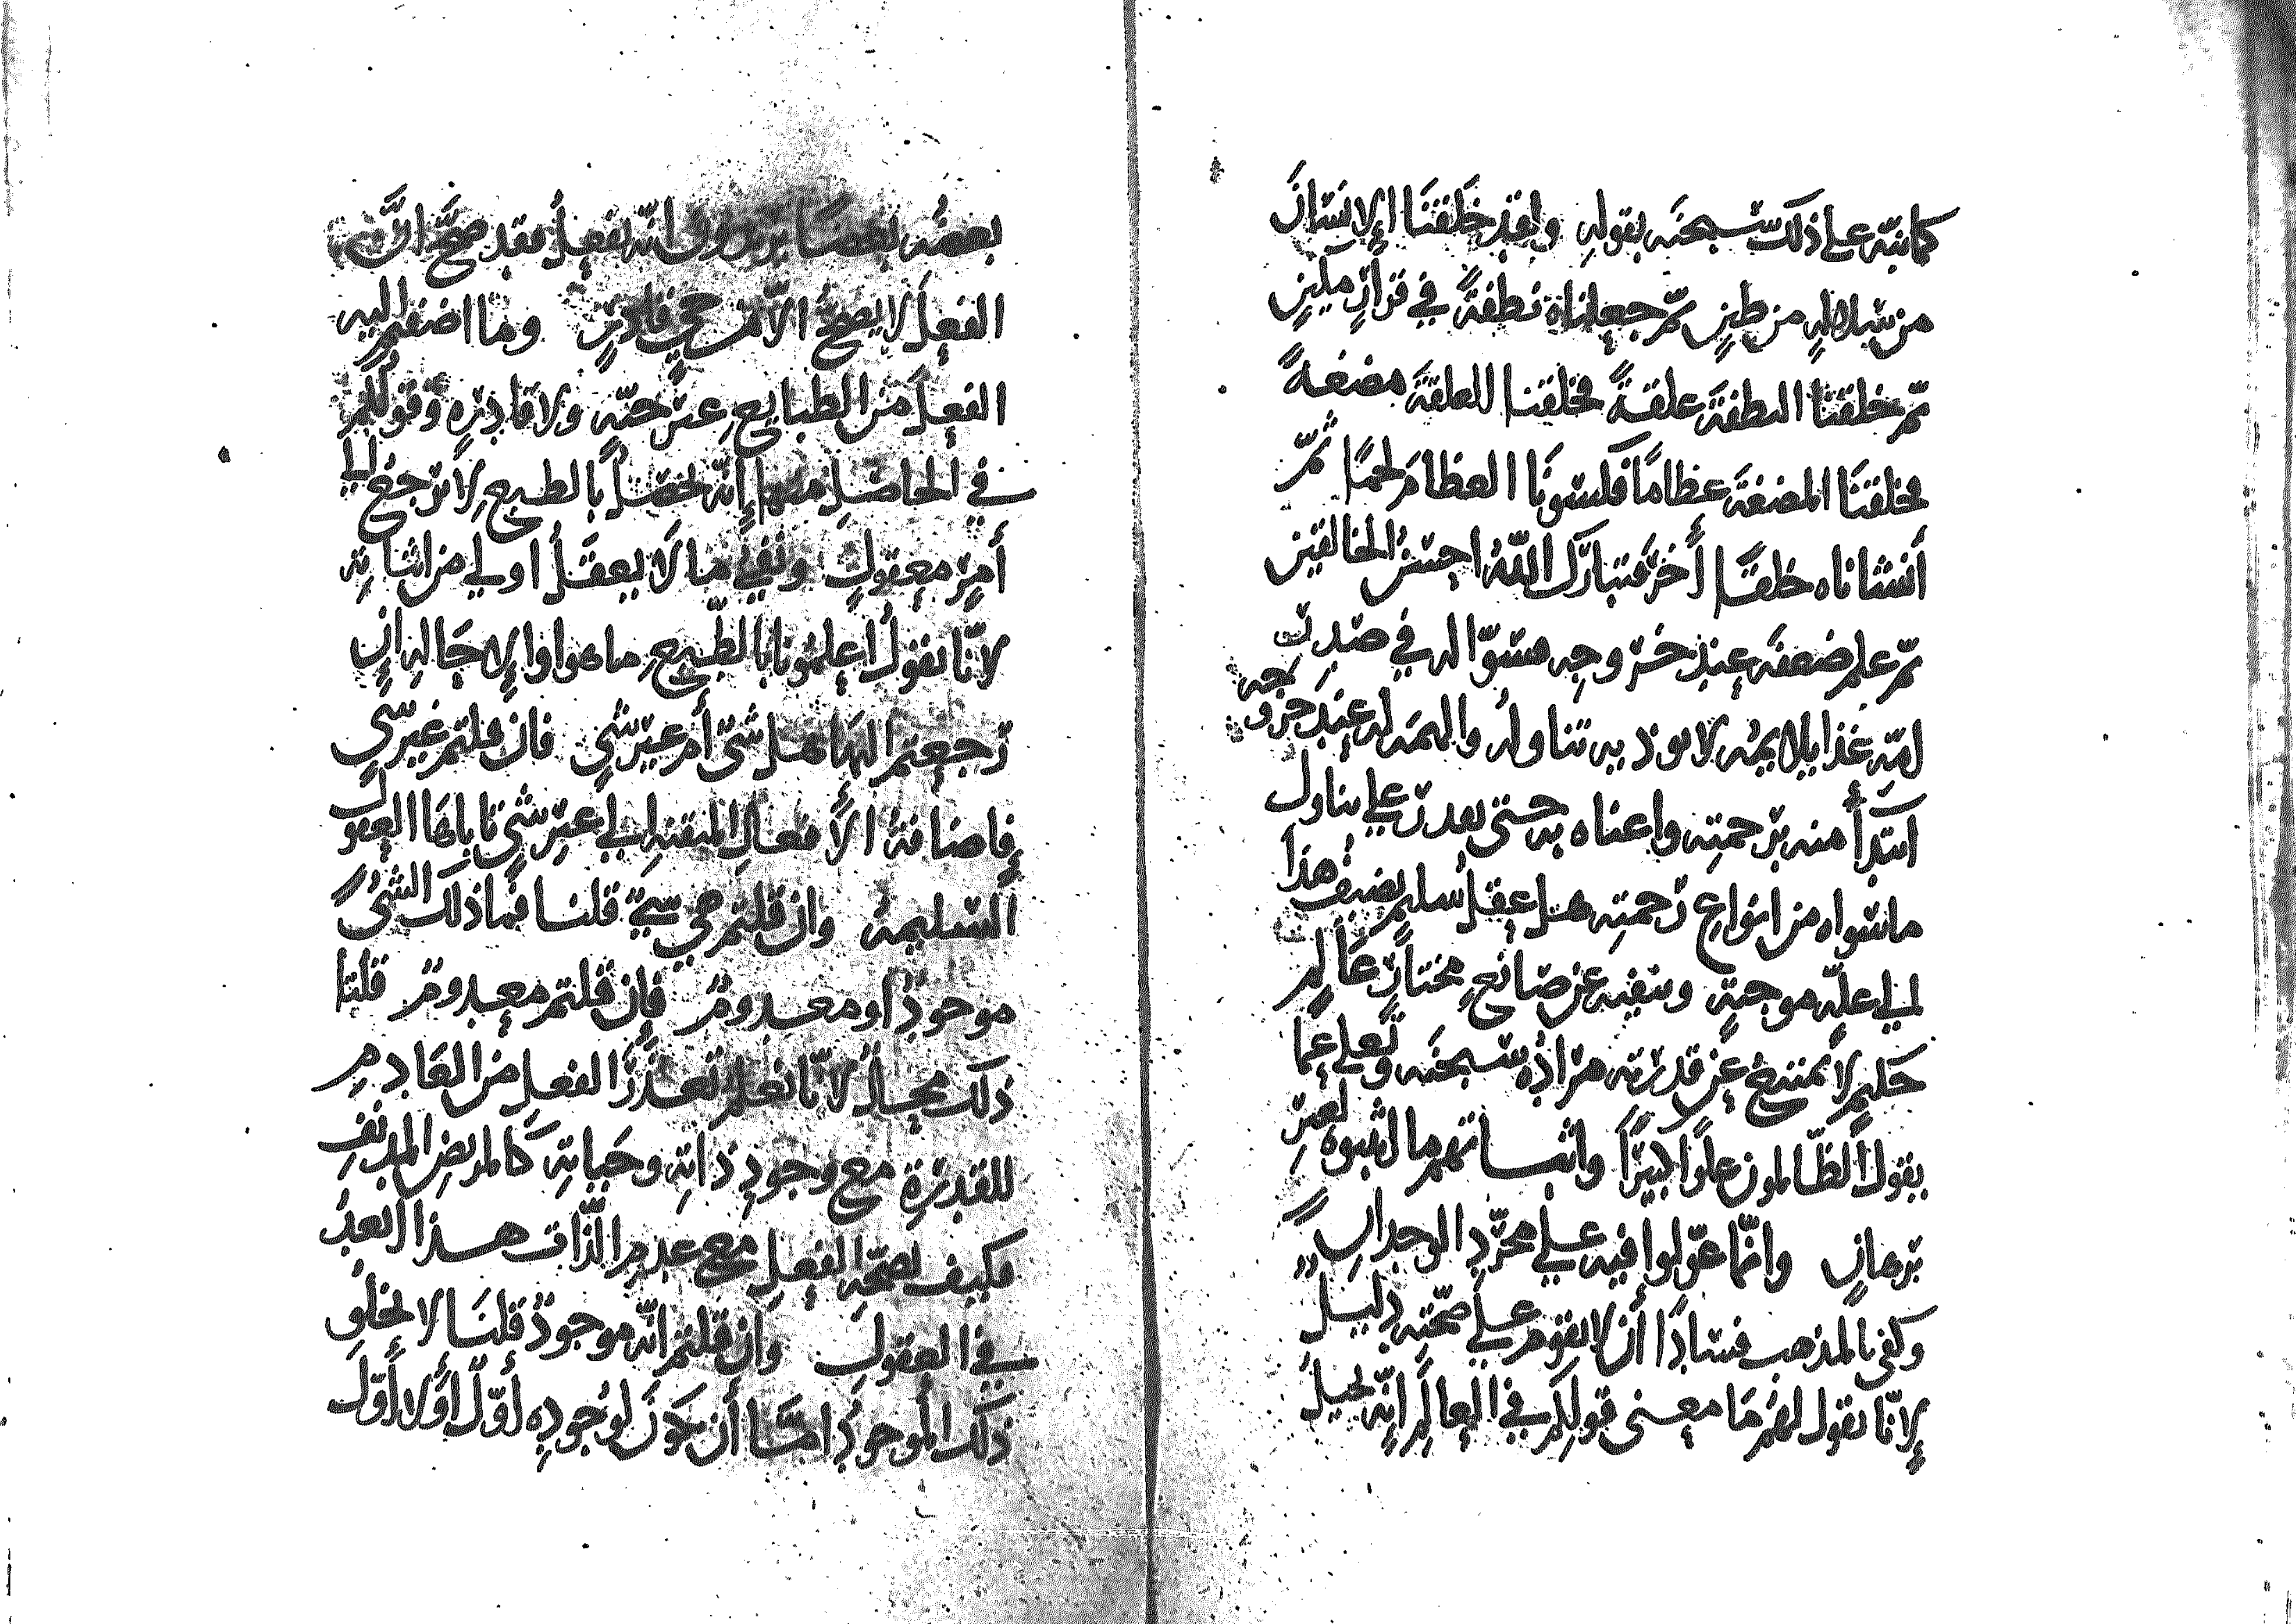 كما نبّه على ذلك سبحنه بقوله ولقد خلقنا الإنسان
من سلالة من طين ثمّ جعلناه نطفةً في قرارٍ مكين
ثمّ خلقنا النطفة علقةً فخلقنا العلقة مضغةً
فخلقنا المضغة عظامًا فكسونا العظام لحمًا ثمّ
أنشاناه خلقًا أخر فتبارك اللّه احسن الخالقين
ثمّ علم ضعفه عند خروجه فسوّا له في
امّه غذا يلايمه لا يوذيه تناوله والهمه له عند خروجه
ابتدأ منه برحمته واغناه به حتى يقدر على تناول
ما سواه من انواع رحمته هل عقل سليم يضيف هذا
الى علّة موجبة وينفيه عن صانع مختار عالم
حكيم لا يمتنع عن قدرته مراده سبحنه وتعلى عما
يقول الظّالمون علوًا كبيرًا واثباتهم ما اثبتوه لغير
برهان وانّما عوّلوا فيه على مجرّد الوجدان
وكفى بالمذهب فسادًا أن لا يقوم على صحّته دليل
لانّا نقول لهم ما معنى قولكم في العالم انّه يحيل
بعضه بعضا تريدون انّه يفعل فقد صحّ انّ
الفعل لا يصحّ الاّ من حي قادر وما اضفتم اليه
الفعل من الطبايع غير حيّه ولا قادره وقولكم
في الحاصل منها إنّه يحصل بالطبع لا يرجع الى
أمر معقول ونفي ما لا يعقل اولى من اثباته
لانّا نقول اعلمونا بالطّبع ما هوا والإحاله ان
رجعتم اليها هل شيّ أم غير شيّ فان قلتم غير شي
فاضافة الأفعال المتقنه الى غير شيّ تاباها العقول
السليمة وان قلتم هي شيّ قلنا فما ذلك الشيّ
موجودٌ او معدومٌ فان قلتم معدومٌ قلنا
ذلك محال لانّا نعلم تعذّر الفعل من العادم
للقدرة مع وجود ذاته وحياته كالمريض المدنف
فكيف يصحّ الفعل مع عدم الذّات هذا ابعد
في العقول وان قلتم انّه موجودٌ قلنا لا يخلو
ذلك الموجود امّا أن يكون لوجوده أوّل أو لا أوّل